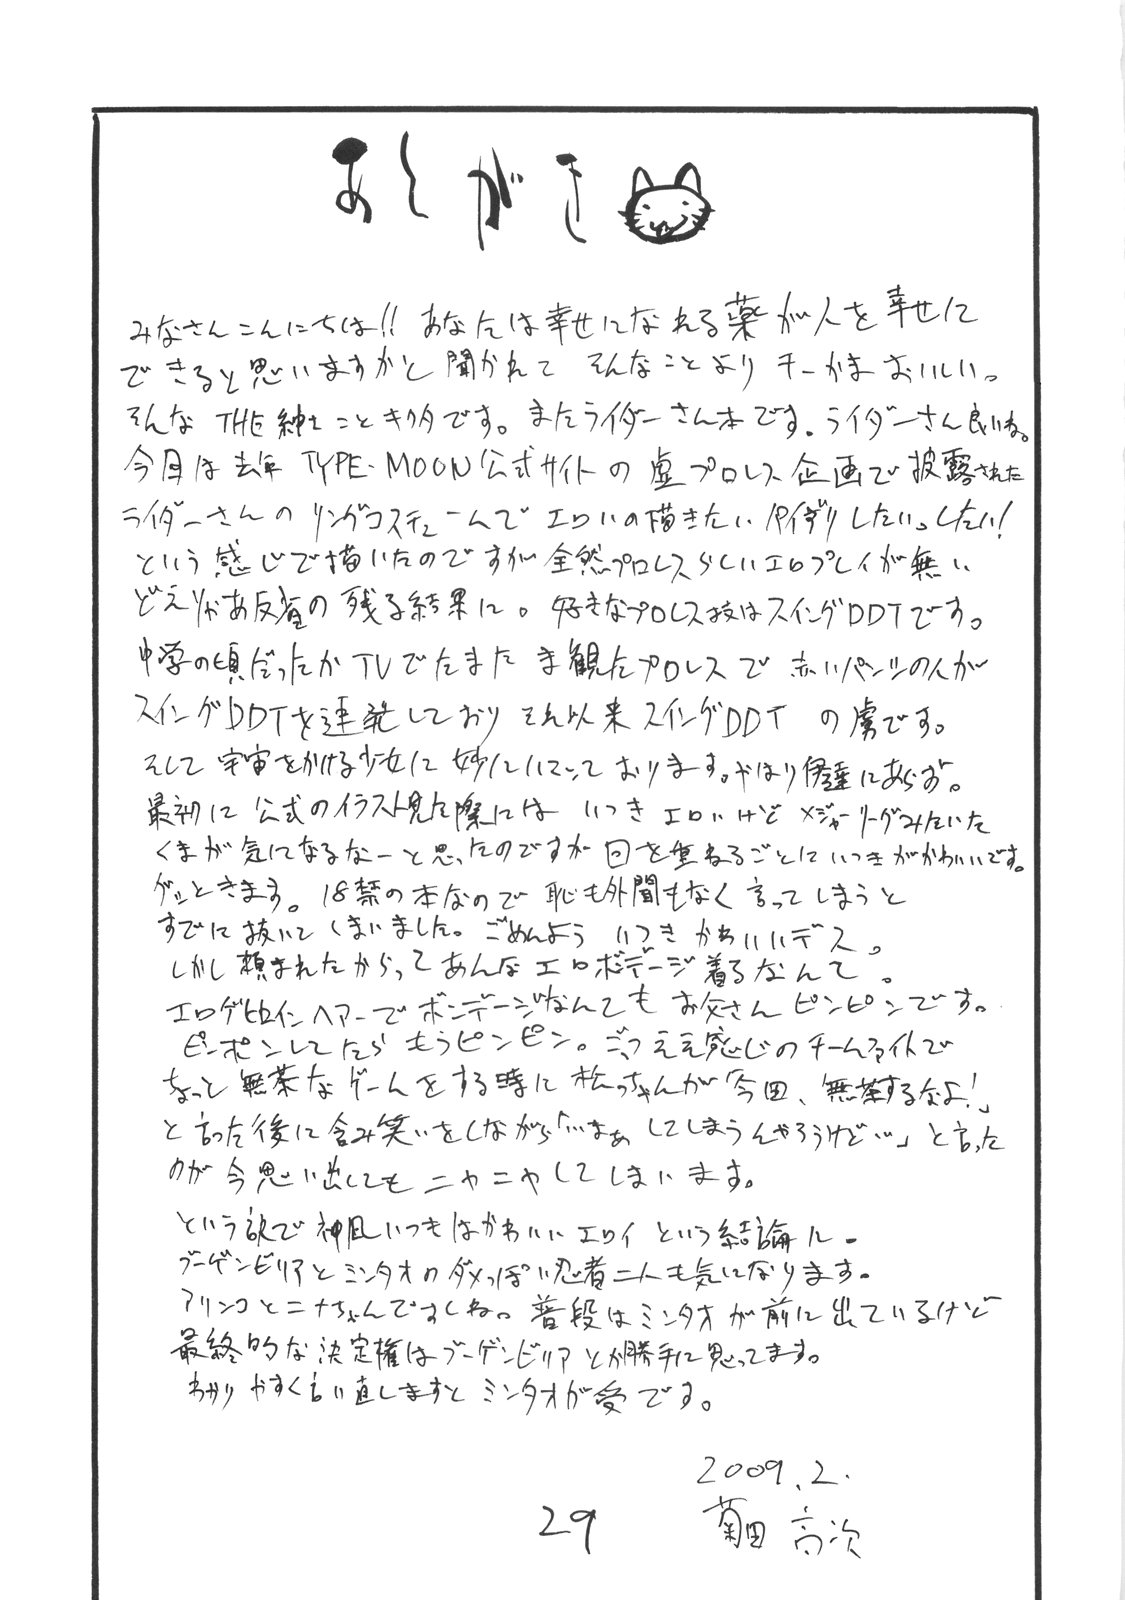 あとがき
みなさんこんにちは!! あなたは幸せになれる薬が人を幸せに
できると思いますかと聞かれて そんなことより チーかまおいしい。
そんな THE紳士ことキクタです。またライダーさん本です。ライダーさん良いね。
今回は去年 TYPE-MOON公式サイトの虚プロレス企画で披露された
ライダーさんの リングコスチュームんで エロいの描きたい パイずりしたいっしたい!
という感じで描いたのですが全然プロレスらしいエロプレイが無い
どえりゃあ反省の残る結果に。好きなプロレス技はスイングDDTです。
中学の頃だったかTVでたまたま観たプロレスで 赤いパンツの人が
スイングDDTを連発しており それ以来スイングDDTの虜です。
そして宇宙をかける少女に妙にハマっております。やはり伊達にあらず。
最初に公式のイラスト見た際には いつき エロいけど メジャーリーグみたいた
くまが気になるなーと思ったのですが回を重ねるごとにいつきがかわいいです。
グッときます。18禁の本なので恥も外聞もなく言ってしまうと
すでに抜いてしまいました。ごめんよう いつきかわいいデス。
しかし頼まれたからってあんなエロボンデージ着るなんて。
エロゲヒロインヘアーでボンデージなんてもお父さんピンピンです。
ピンポンしてたら もうピンピン。ごっつええ感じのチームファイトで
ちょっと無茶なゲームをする時に松っちゃんが「今田、無茶するなよ!」
と言った後に含み笑いをしながら「…まぁ してしまうんやろうけど…」と言った
のが今思い出してもニヤニヤしてしまいます。
という訳で神凪いつきはかわいいエロイという結論に。
ブーゲンビリアとミンタオのダメっぽい忍者二人も気になります。
アリンコとニナちゃんですしね。普段はミンタオが前に出ているけど
最終的な決定権はブーゲンビリアとか勝手に思ってます。
わかりやすく言い直しますと ミンタオが受です。
2009.2.
菊田 高次
29